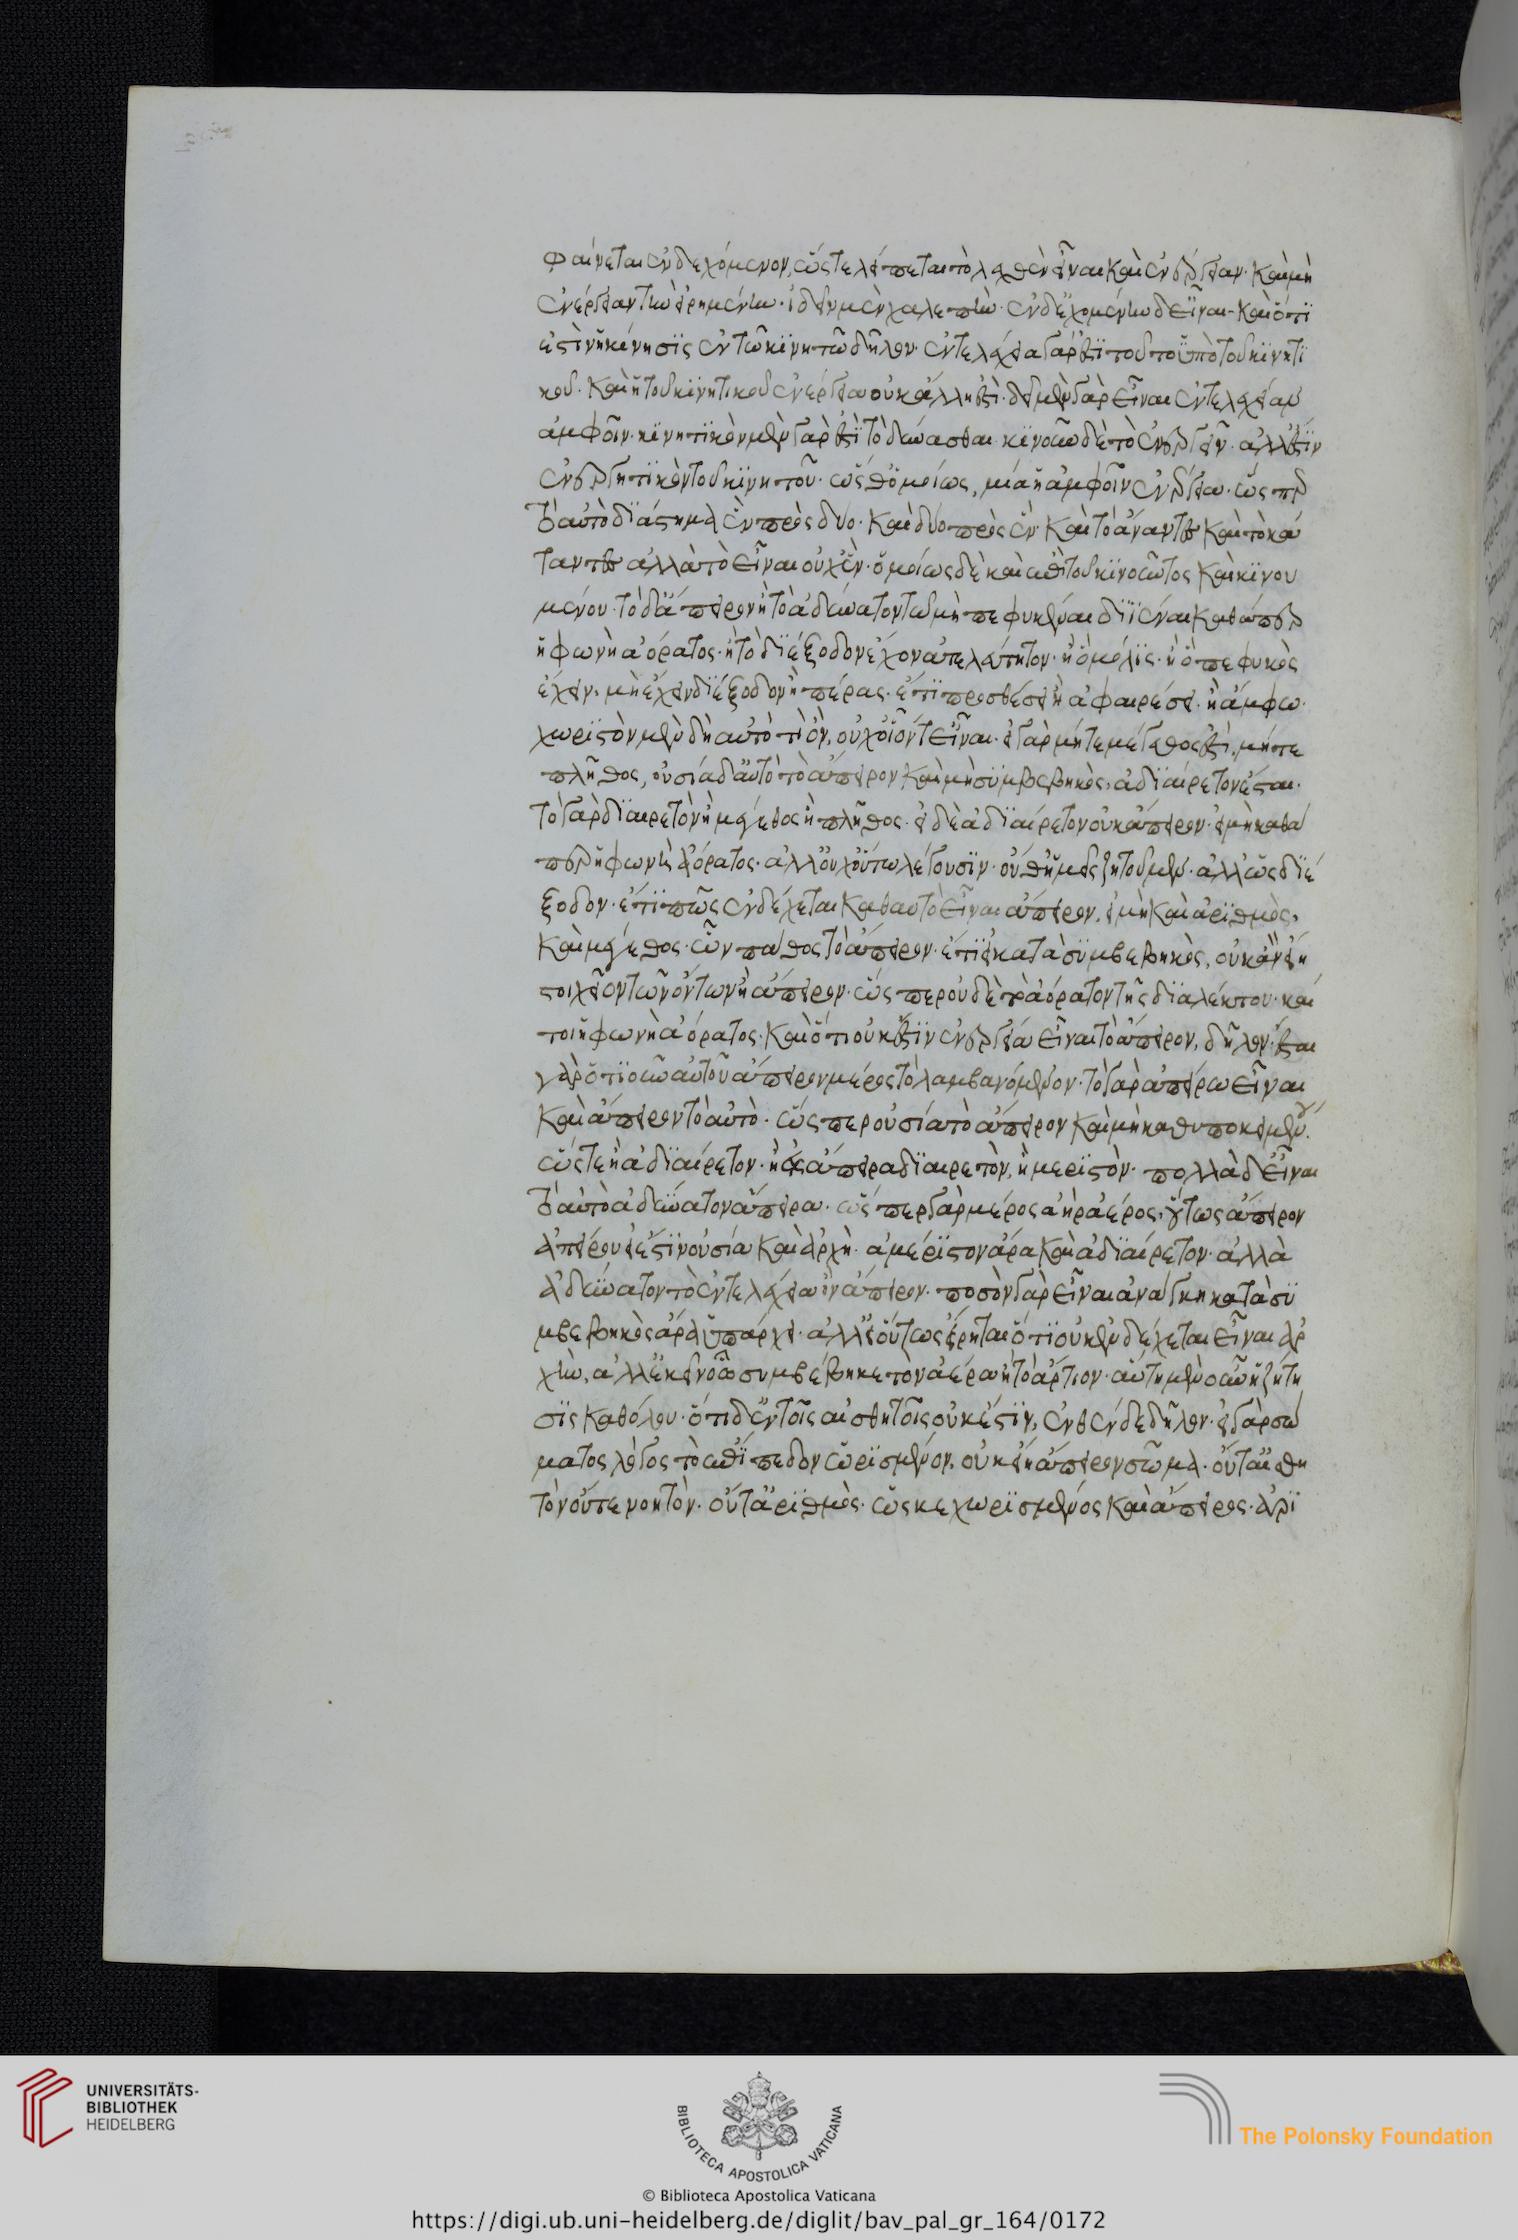 φαίνεται ἐνδεχόμενον, ὥστε λείπεται τὸ λεχθὲν εἶναι καὶ ἐνέργειαν· καὶ μὴ
ἐνέργειαν τὴν εἰρημένην· ἰδεῖν μὲν χαλεπὴν· ἐνδεχομένην δ' εἶναι· καὶ ὅτι
ἐστὶν ἡ κίνησις ἐν τῷ κινητῷ δῆλον· ἐντελέχεια γάρ ἐστι τούτου ὑπὸ τοῦ κινητι
κοῦ· καὶ ἡ τοῦ κινητικοῦ ἐνέργεια οὐκ ἄλλη ἐστί· δεῖ μὲν γὰρ εἶναι ἐντελέχειαν
ἀμφοῖν· κινητικὸν μὲν γὰρ ἐστὶ τὸ δύνασθαι· κινοῦν δὲ τὸ ἐνεργεῖν· ἀλλ' ἐστὶν
ἐνεργητικὸν τοῦ κινητοῦ· ὥσθ' ὁμοίως, μία ἡ ἀμφοῖν ἐνέργεια· ὥσπερ
τὸ αὐτὸ διάστημα ἓν πρὸς δύο· καὶ δύο πρὸς ἓν· καὶ τὸ ἄναντες καὶ τὸ κά
ταντες ἀλλὰ τὸ εἶναι οὐχ ἕν· ὁμοίως δὲ καὶ ἐπὶ τοῦ κινοῦντος καὶ κινου
μένου· τὸ δ' ἄπειρον ἢ τὸ ἀδύνατον τῷ μὴ πεφυκέναι διϊέναι καθάπερ
ἡ φωνὴ ἀόρατος· ἢ τὸ διέξοδον ἔχον ἀτελεύτητον· ἢ ὃ μόλις· ἢ ὃ πεφυκὸς
ἔχειν, μὴ ἔχειν διέξοδον ἢ πέρας· ἔτι προσθέσει ἢ ἀφαιρέσει· ἢ ἄμφω·
χωριστὸν μὲν δὴ αὐτό τι ὂν, οὐχ οἷόν τ' εἶναι· εἰ γὰρ μήτε μέγεθός ἐστι, μήτε
πλῆθος, οὐσία δ' αὐτὸ τὸ ἄπειρον καὶ μὴ συμβεβηκὸς, ἀδιαίρετον ἔσται·
τὸ γὰρ διαιρετὸν ἢ μέγεθος ἢ πλῆθος· εἰ δὲ ἀδιαίρετον οὐκ ἄπειρον· εἰ μὴ καθά
περ ἡ φωνὴ ἀόρατος· ἀλλ' οὐχ οὕτω λέγουσιν· οὐδ' ἡμεῖς ζητοῦμεν· ἀλλ' ὡς διέ
ξοδον· ἔτι πῶς ἐνδέχεται καθ' αὑτὸ εἶναι ἄπειρον, εἰ μὴ καὶ ἀριθμὸς,
καὶ μέγεθος· ὧν πάθος τὸ ἄπειρον· ἔτι εἰ κατὰ συμβεβηκὸς, οὐκ ἂν εἴη
στοιχεῖον τῶν ὄντων ἢ ἄπειρον· ὥσπερ οὐδὲ τὸ ἀόρατον τῆς διαλέκτου· καί
τοι ἡ φωνὴ ἀόρατος· καὶ ὅτι οὐκ ἔστιν ἐνεργείᾳ εἶναι τὸ ἄπειρον, δῆλον· ἔσται
γὰρ ὁτιοῦν αὐτοῦ ἄπειρον μέρος τὸ λαμβανόμενον· τὸ γὰρ ἀπείρῳ εἶναι
καὶ ἄπειρον τὸ αὐτὸ· ὥσπερ οὐσία τὸ ἄπειρον καὶ μὴ καθ' ὑποκειμένου·
ὥστε ἢ ἀδιαίρετον· ἢ εἰς ἄπειρα διαιρετὸν, ἢ μεριστὸν· πολλὰ δ' εἶναι
τὸ αὐτὸ ἀδύνατον ἄπειρα· ὥσπερ γὰρ μέρος ἀὴρ ἀέρος, οὕτως ἄπειρον
ἀπείρου εἰ ἔστιν οὐσία καὶ ἀρχὴ· ἀμέριστον ἄρα καὶ ἀδιαίρετον· ἀλλὰ
ἀδύνατον τὸ ἐντελεχείᾳ ὂν ἄπειρον· ποσὸν γὰρ εἶναι ἀνάγκη κατὰ συ
μβεβηκὸς ἄρα ὑπάρχει· ἀλλ' εἰ οὕτως εἴρηται ὅτι οὐκ ἐνδέχεται εἶναι ἀρ
χὴν, ἀλλ' ἐκεῖνο ᾧ συμβέβηκε τὸν ἀέρα ἢ τὸ ἄρτιον· αὕτη μὲν οὖν ἡ ζήτη
σις καθόλου· ὅτι δ' ἐν τοῖς αἰσθητοῖς οὐκ ἔστιν, ἐνθένδε δῆλον· εἰ γὰρ σώ
ματος λόγος τὸ ἐπίπεδον ὡρισμένον, οὐκ εἴη ἄπειρον σῶμα· οὔτ' αἰσθη
τὸν οὔτε νοητὸν· οὔτ' ἀριθμὸς· ὡς κεχωρισμένος καὶ ἄπειρος· ἀρι
UNIVERSITÄTS-
BIBLIOTHEK
HEIDELBERG
BIBLIOTECA APOSTOLICA VATICANA
The Polonsky Foundation
© Biblioteca Apostolica Vaticana
https://digi.ub.uni-heidelberg.de/diglit/bav_pal_gr_164/0172